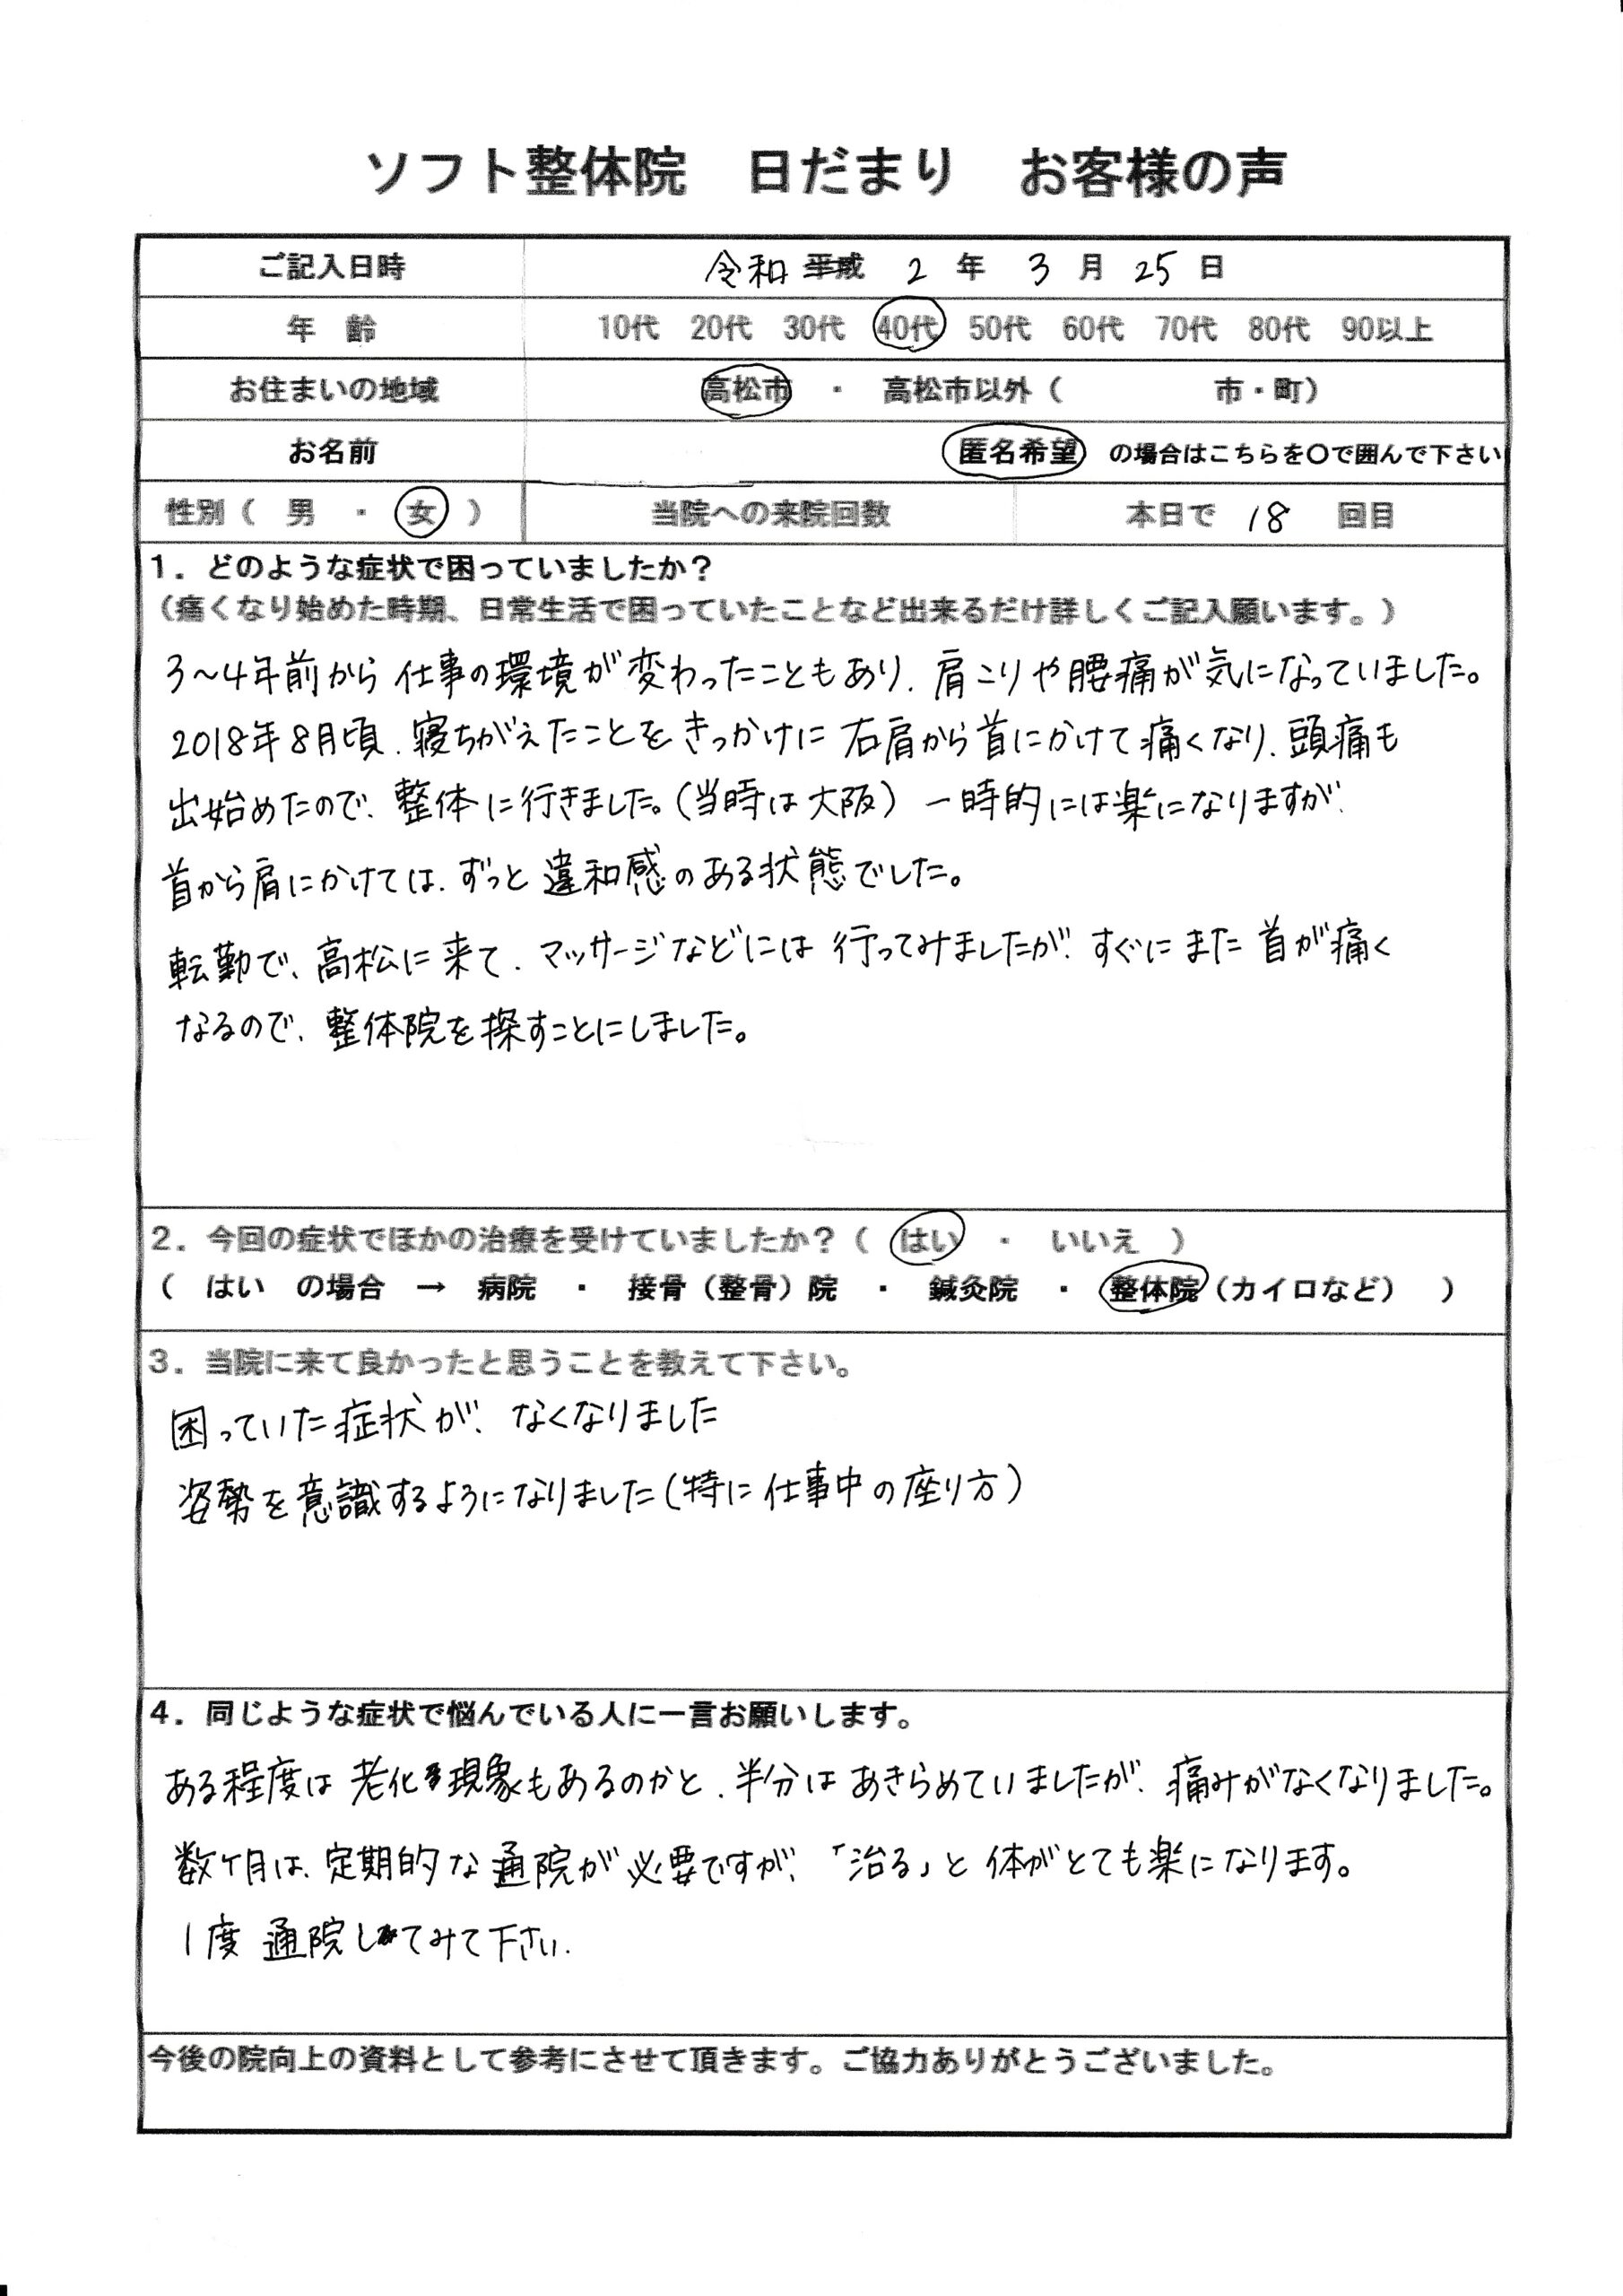 ソフト整体院　日だまり　お客様の声
ご記入日時　令和 平成 2 年 3 月 25 日
年　齢　10代　20代　30代　40代　50代　60代　70代　80代　90以上
お住まいの地域　高松市　・　高松市以外（　　　　　市・町）
お名前　匿名希望　の場合はこちらを〇で囲んで下さい
性別（　男　・　女　）　当院への来院回数　本日で 18 回目
1．どのような症状で困っていましたか？
（痛くなり始めた時期、日常生活で困っていたことなど出来るだけ詳しくご記入願います。）
3～4年前から仕事の環境が変わったこともあり、肩こりや腰痛が気になっていました。
2018年8月頃、寝ちがえたことをきっかけに右肩から首にかけて痛くなり、頭痛も
出始めたので、整体に行きました。（当時は大阪）一時的には楽になりますが、
首から肩にかけては、ずっと違和感のある状態でした。
転勤で、高松に来て、マッサージなどには行ってみましたが、すぐにまた首が痛く
なるので、整体院を探すことにしました。
2．今回の症状でほかの治療を受けていましたか？（　はい　・　いいえ　）
（　はい　の場合　→　病院　・　接骨（整骨）院　・　鍼灸院　・　整体院（カイロなど）　）
3．当院に来て良かったと思うことを教えて下さい。
困っていた症状が、なくなりました
姿勢を意識するようになりました（特に仕事中の座り方）
4．同じような症状で悩んでいる人に一言お願いします。
ある程度は老化現象もあるのかと、半分はあきらめていましたが、痛みがなくなりました。
数ケ月は、定期的な通院が必要ですが、「治る」と体がとても楽になります。
1度通院してみて下さい。
今後の院向上の資料として参考にさせて頂きます。ご協力ありがとうございました。